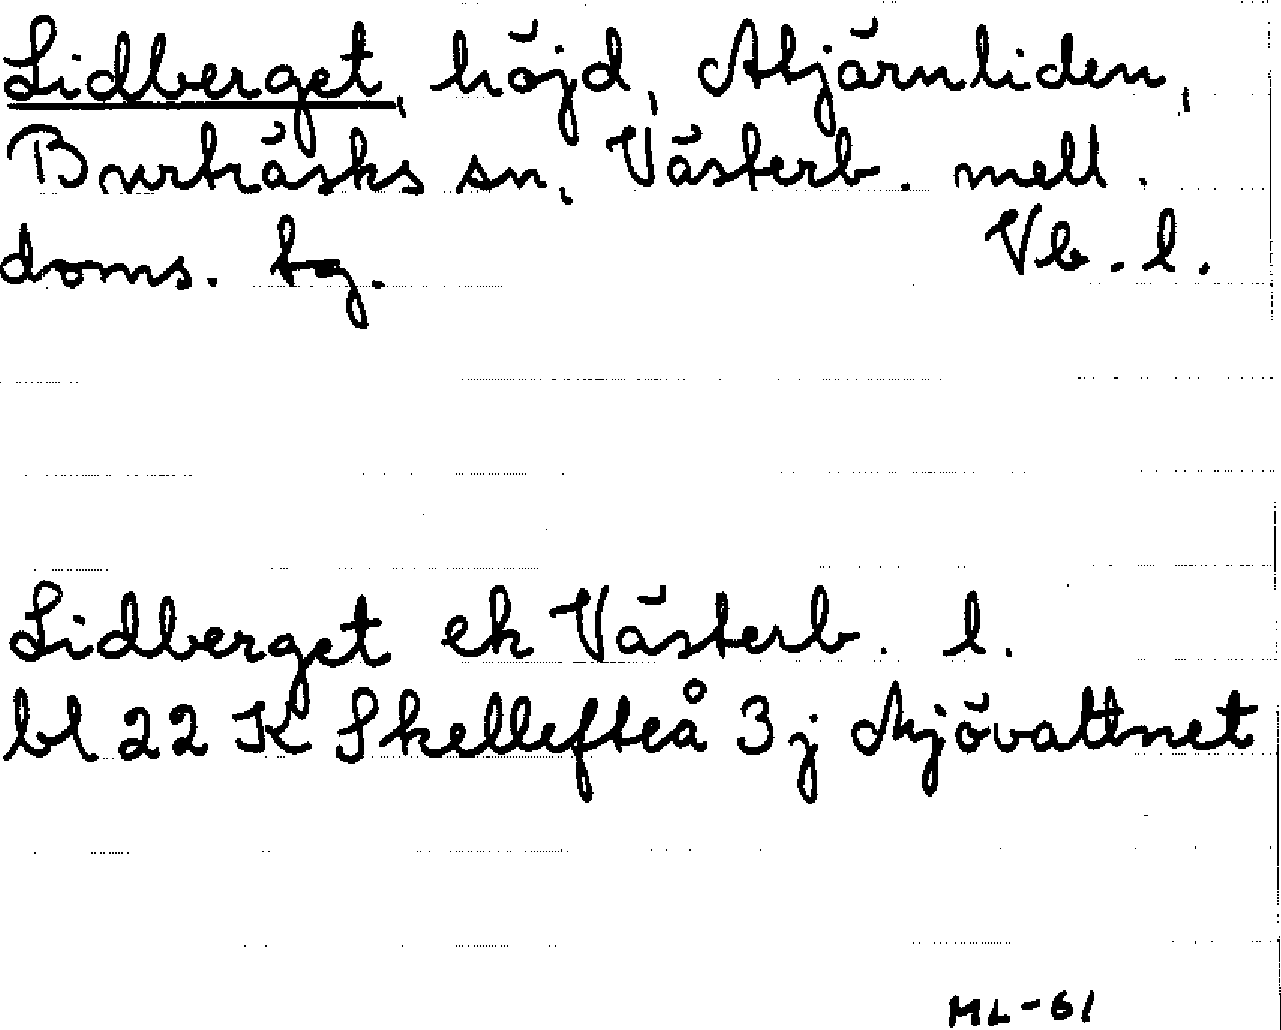 Lidberget, höjd,
Burträsks sn, Västerb. mell.
doms. bg. Vb. l.
Lidberget ek Västerb. l.
bl 22 K Skellefteå 3 j Mjövattnet
ML-61